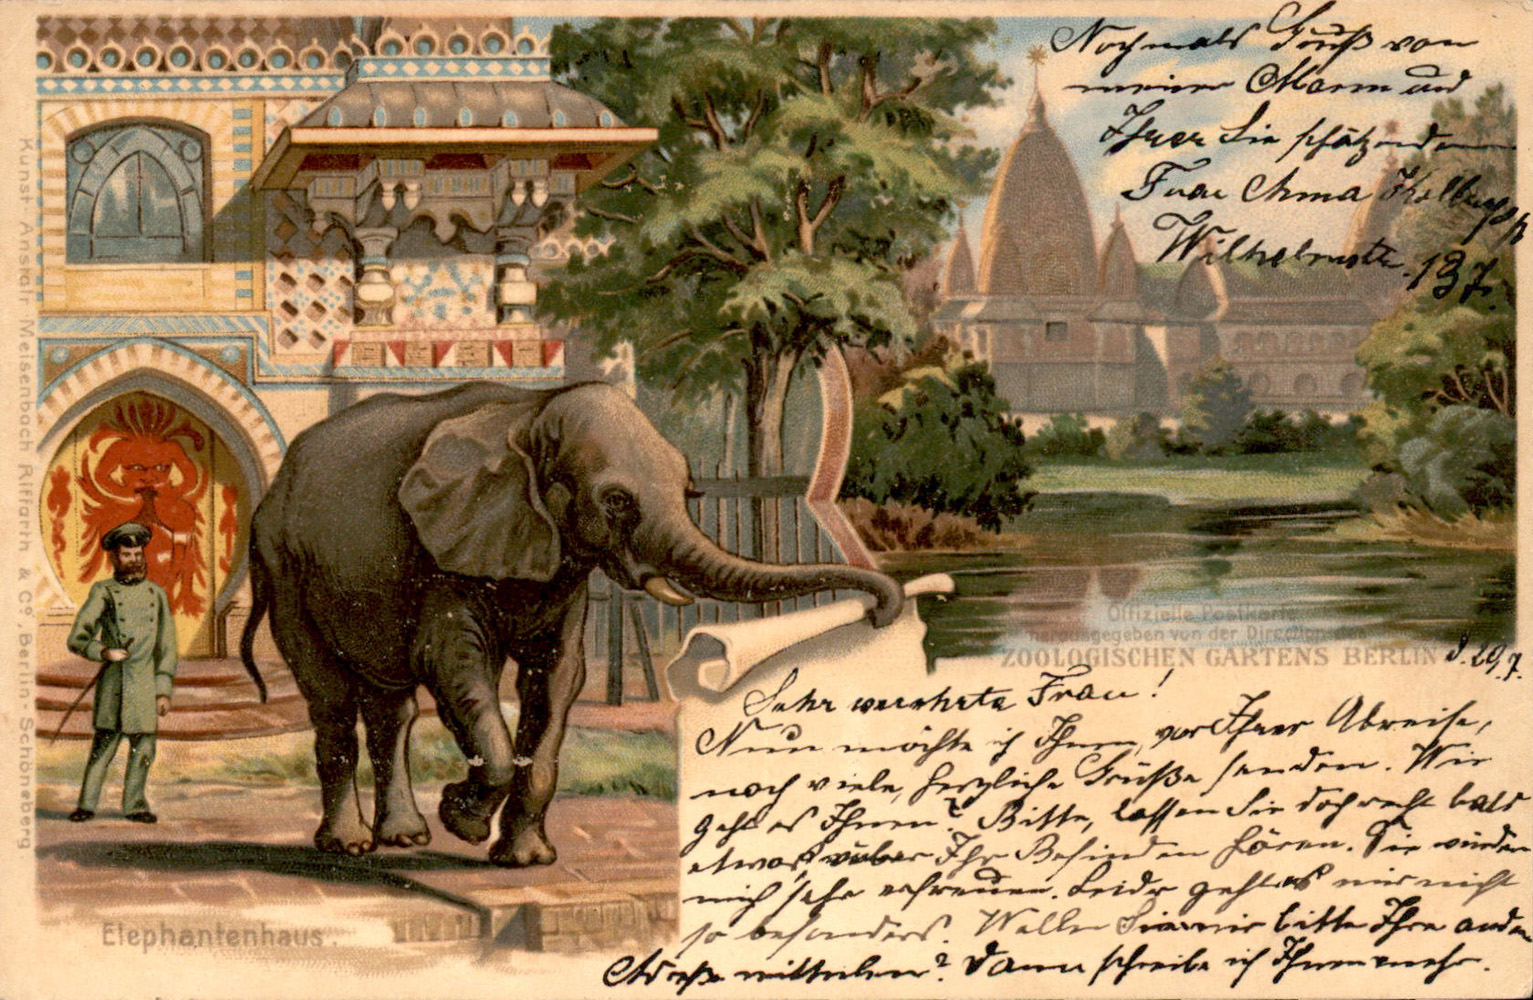 Nochmals Gruß von
meiner Mama und
Ihrer Sie schätzenden
Frau Anna
Wilhelmstr. 137.
Kunst-Anstalt Meisenbach Riffarth & Co, Berlin-Schöneberg.
Offizielle Postkarte
herausgegeben von der Direction des
ZOOLOGISCHEN GARTENS BERLIN
d. 29. 7.
Sehr verehrte Frau!
Nun möchte ich Ihnen, vor Ihrer Abreise,
noch viele, herzliche Grüße senden. Wie
geht es Ihnen? Bitte, lassen Sie doch recht bald
etwas über Ihr Befinden hören. Sie würden
mich sehr erfreuen. Leider geht es mir nicht
so besonders. Wollen Sie mir bitte Ihre andere
Adresse mitteilen? Dann schreibe ich Ihnen mehr.
Elephantenhaus.